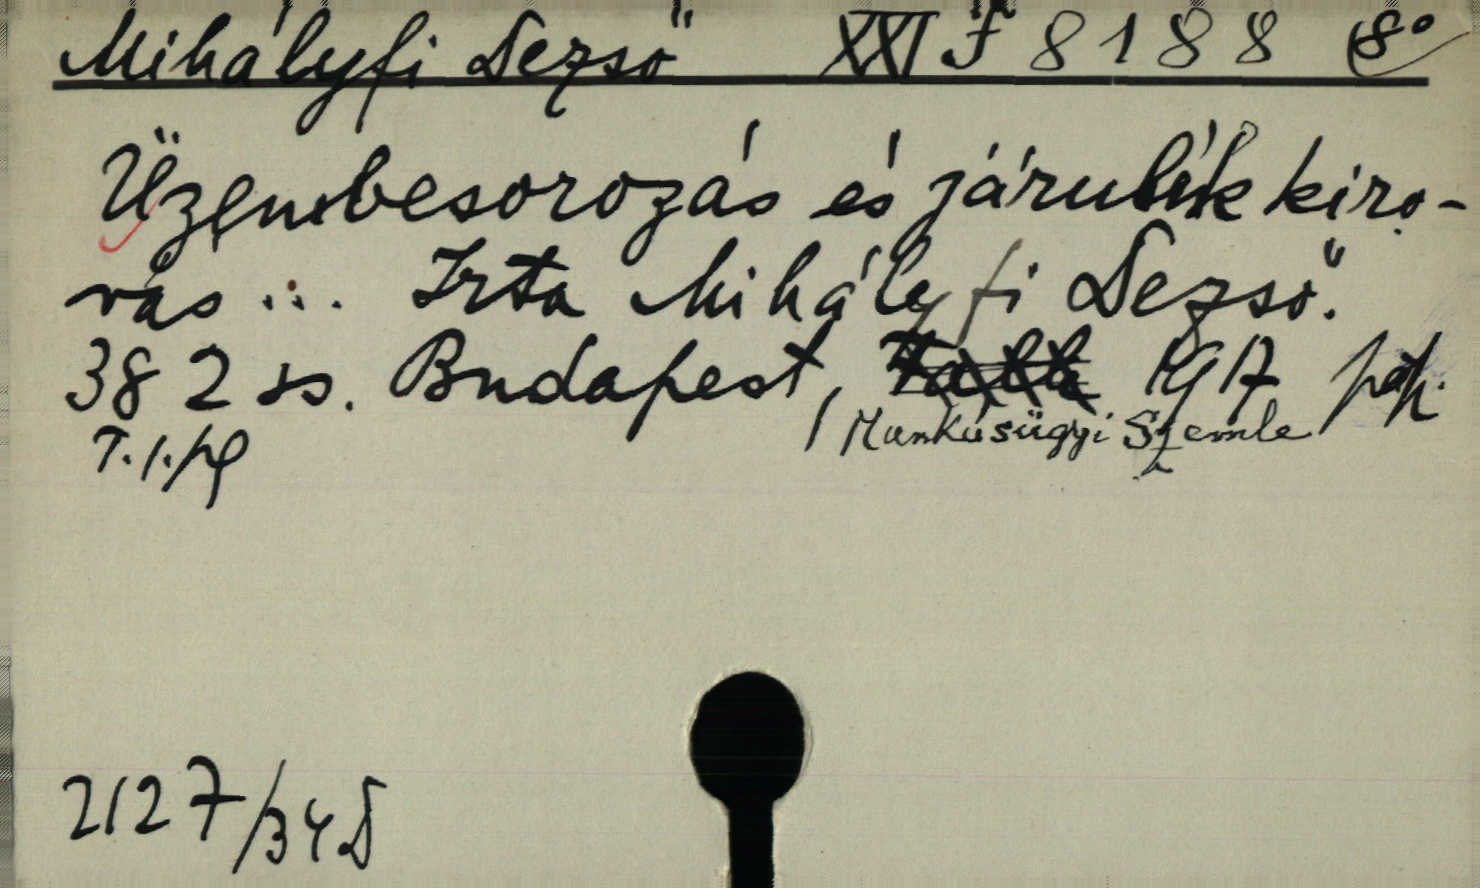 Mihályfi Dezső XXI F 8188 8°
Üzembesorozás és járulék kiro-
vás ... Irta Mihályfi Dezső.
382 ss. Budapest, 1917
Munkásügyi Szemle
T. 1.
2127/34 D